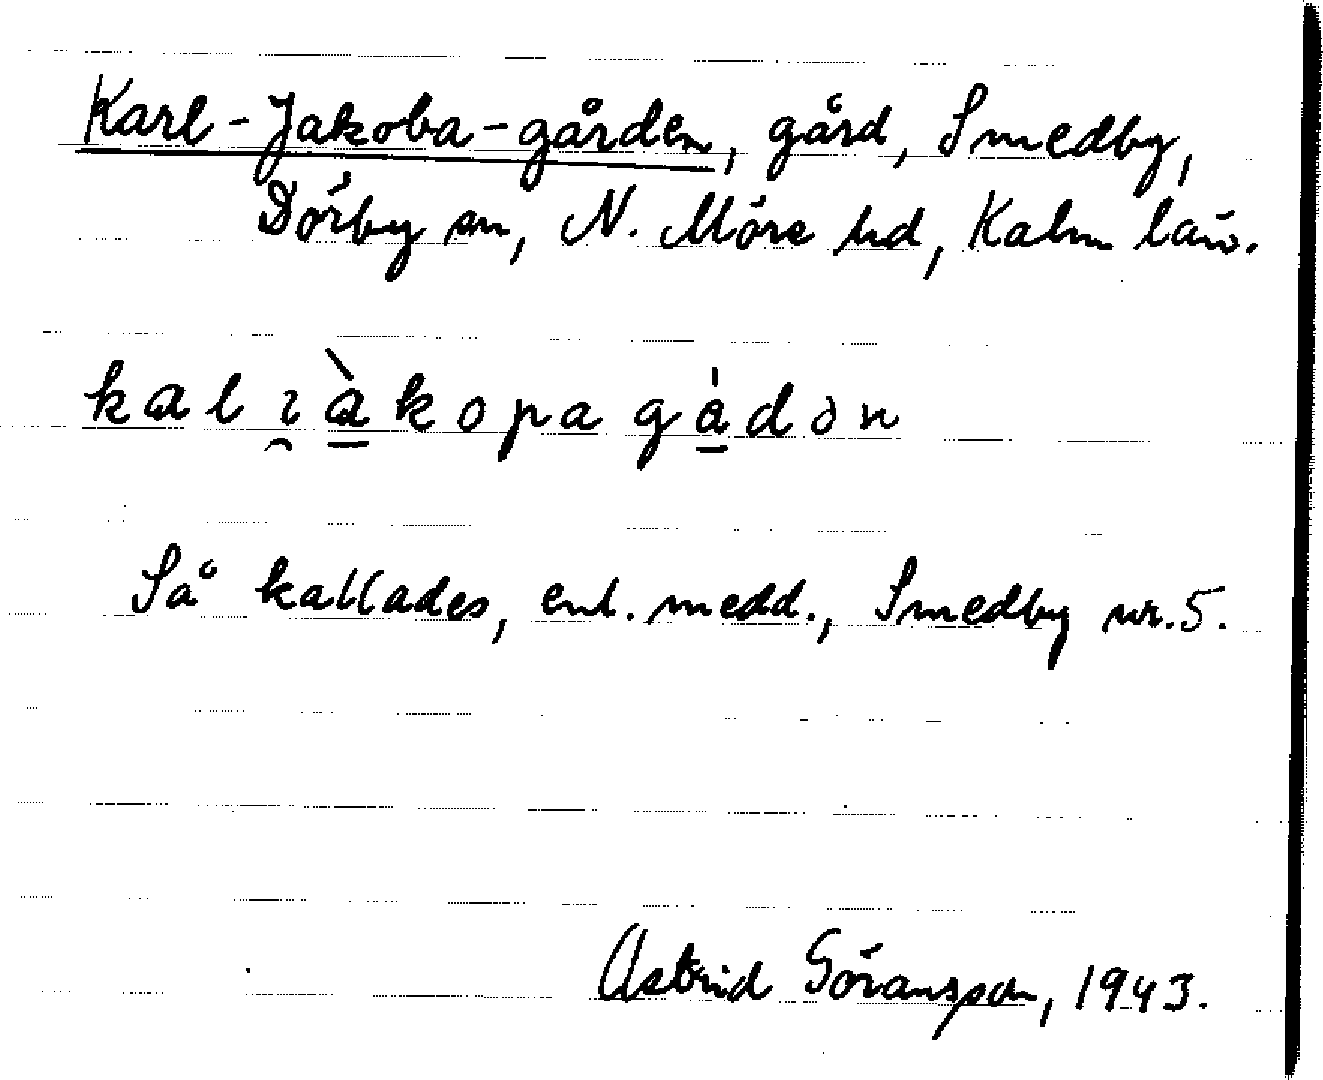 Karl-Jakoba-gården, gård, Smedby,
Dörby sn, N. Möre hd, Kalm län.
kalı̯àkopagådən
Så kallades, enl. medd., Smedby nr. 5.
Astrid Göransson, 1943.